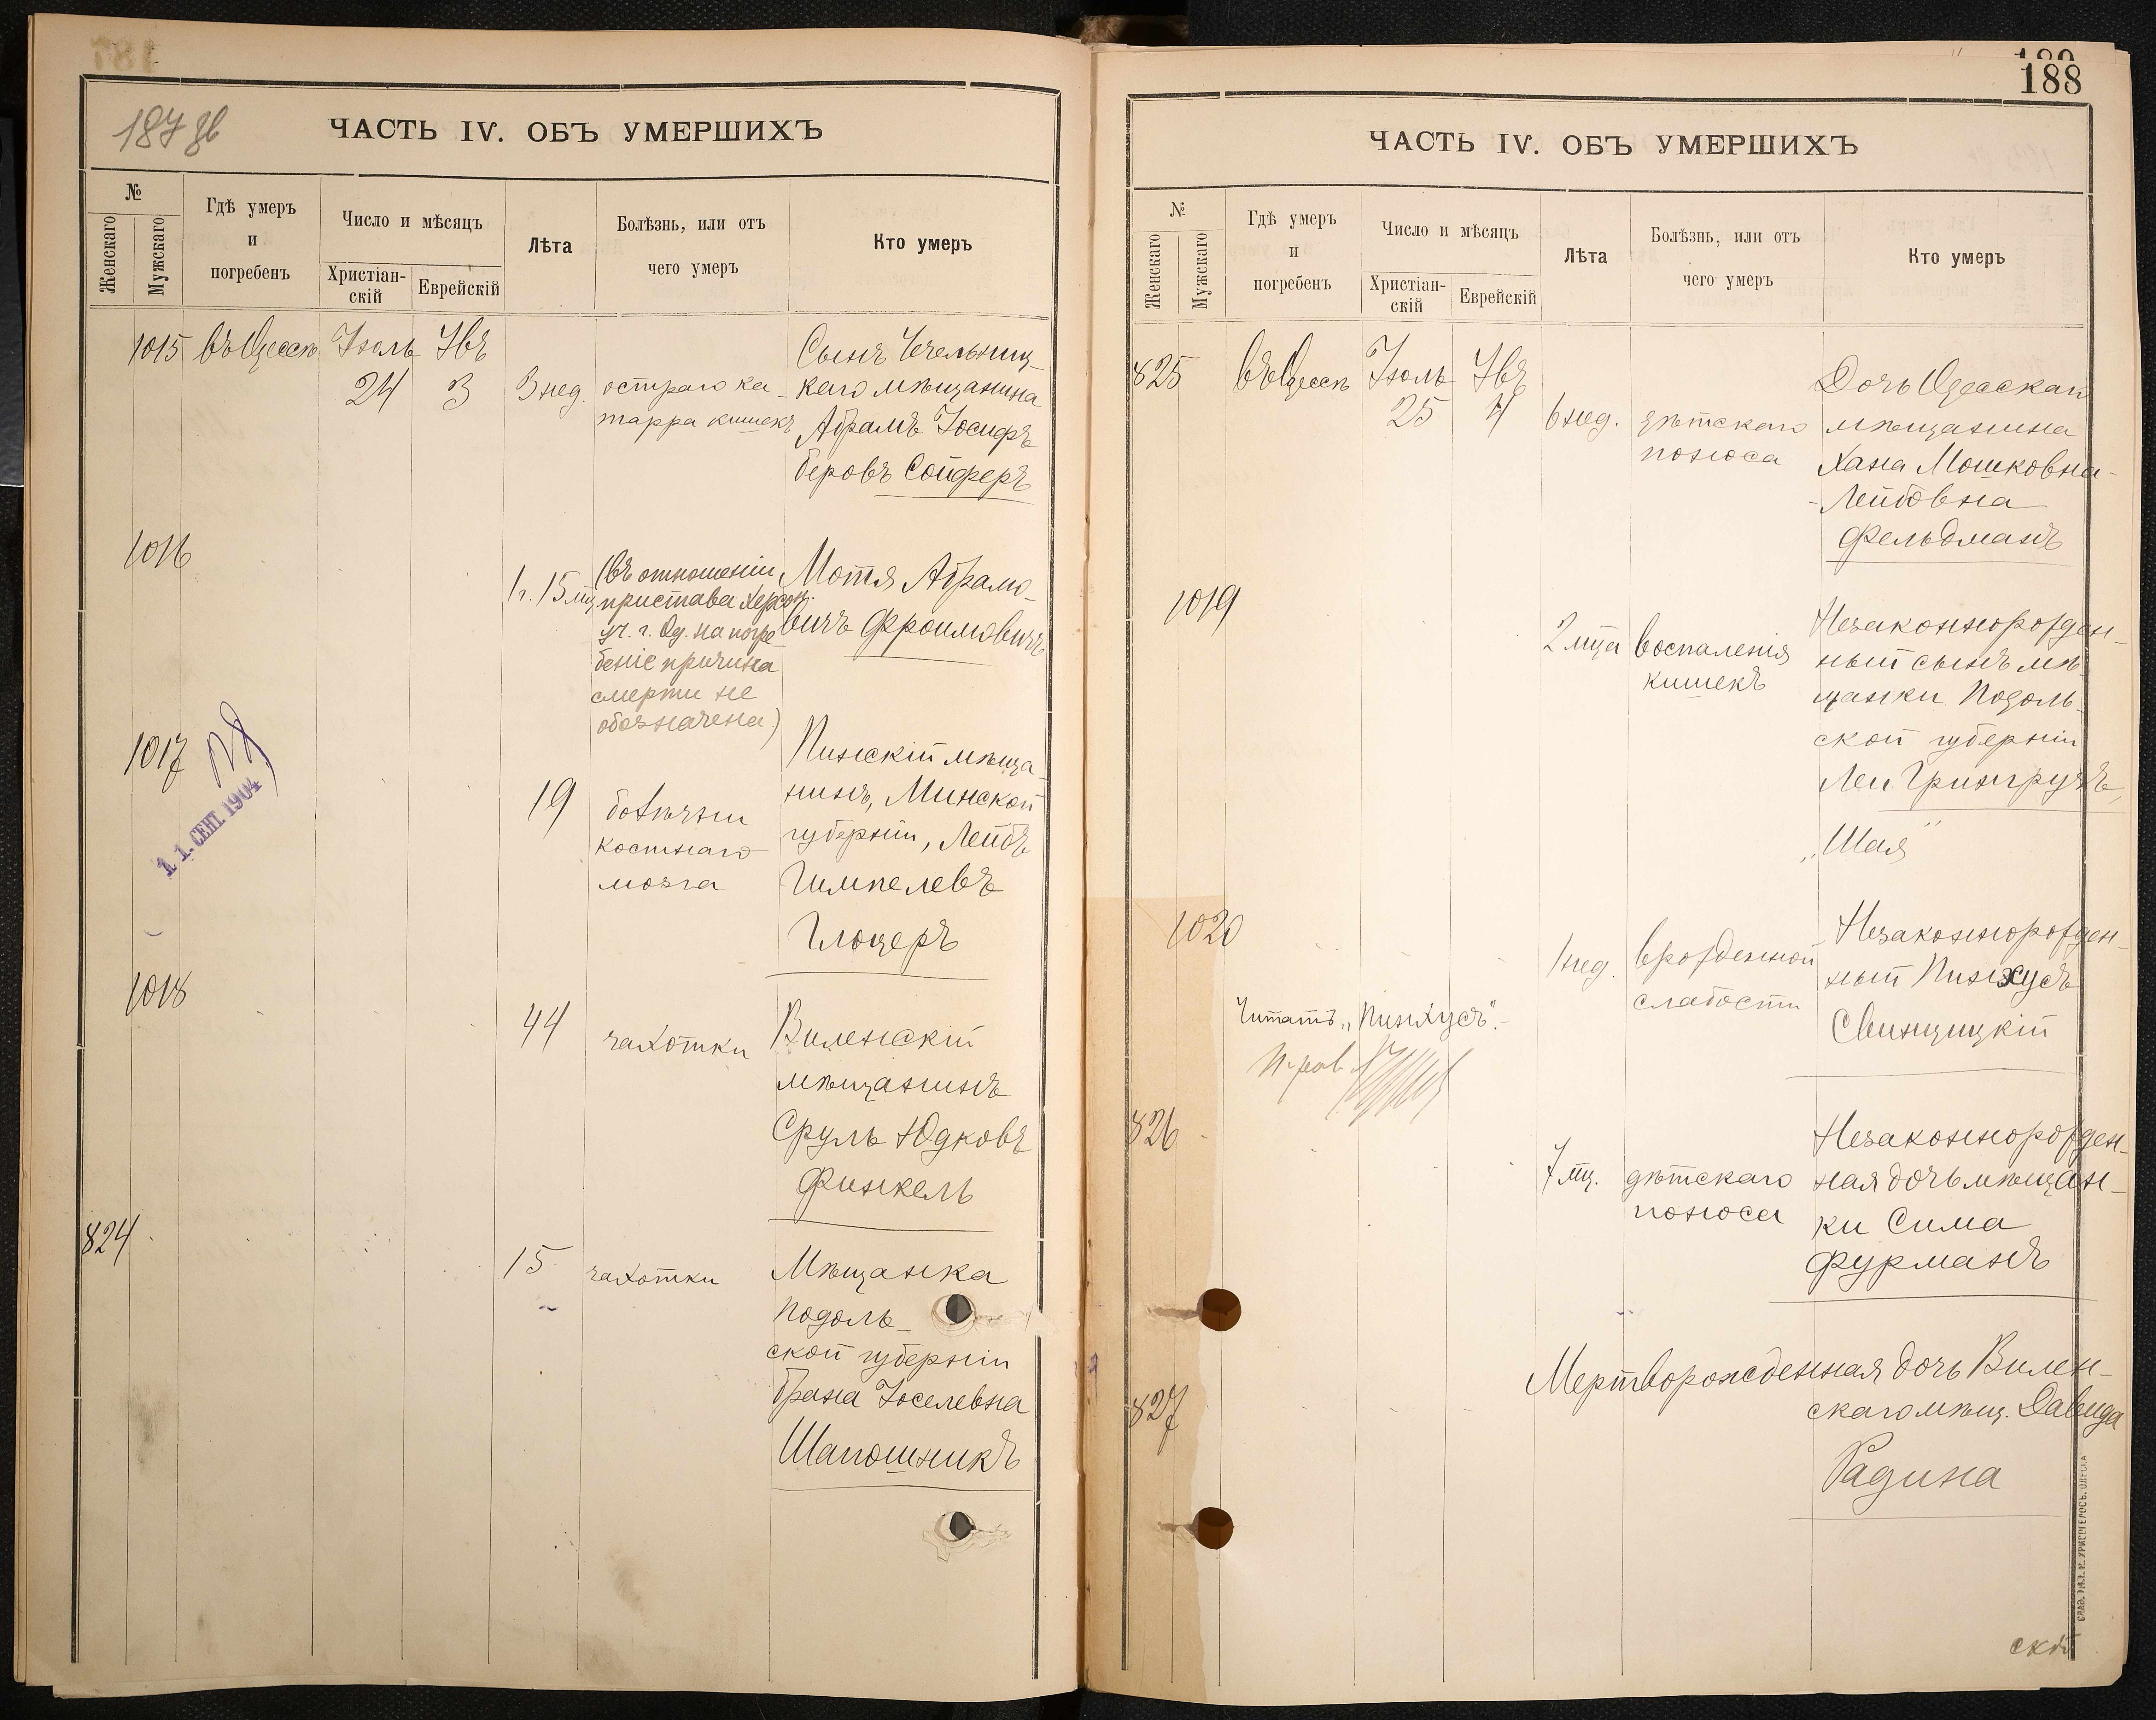 187 зв
ЧАСТЬ IV. ОБЪ УМЕРШИХЪ
№
Женскаго
Мужскаго
Гдѣ умеръ
и
погребенъ
Число и мѣсяцъ
Христіан-
скій
Еврейскій
Лѣта
Болѣзнь, или отъ
чего умеръ
Кто умеръ
1015 въ Одессѣ Іюль Увъ
24 3 3 нед. остраго ка-
тарра кишекъ
Сынъ Чечельниц-
каго мѣщанина
Абрамъ Іосифъ
Беровъ Сойферъ
1016
1 г. 15 мц
(въ отношеніи
пристава Херсон.
уч. г. Од. на погре
беніе причина
смерти не
обозначена)
Мотя Абрамо-
вичъ Фроимовичъ
1017
11. СЕНТ. 1904
19 болѣзни
костнаго
мозга
Пинскій мѣща-
нинъ, Минской
губерніи, Лейбъ
Гимпелевъ
Глоцеръ
1018
44 чахотки
Виленскій
мѣщанинъ
Сруль Юдковъ
Финкель
824
15 чахотки
Мѣщанка
Подоль-
ской губерніи
Брана Іоселевна
Шапошникъ
188
ЧАСТЬ IV. ОБЪ УМЕРШИХЪ
№
Женскаго
Мужскаго
Гдѣ умеръ
и
погребенъ
Число и мѣсяцъ
Христіан-
скій
Еврейскій
Лѣта
Болѣзнь, или отъ
чего умеръ
Кто умеръ
825 въ Одессѣ Іюль Увъ
25 4 6 нед. дѣтскаго
поноса
Дочь Одесскаго
мѣщанина
Хана Мошковна-
-Лейбовна
Фельдманъ
1019
2 мца воспаленія
кишекъ
Незаконнорожден-
ный сынъ мѣ-
щанки Подоль-
ской губерніи
Леи Грингрузъ,
„Шая”
1020
1 нед. врожденной
слабости
Незаконнорожден-
ный Пинхусъ
Свинцицкій
Читать „Пинхусъ”.-
826
7 мц. дѣтскаго
поноса
Незаконнорожден-
ная дочь мѣщан-
ки Сима
Фурманъ
827
Мертворожденная дочь Вилен-
скаго мѣщ. Давида
Радина
ской